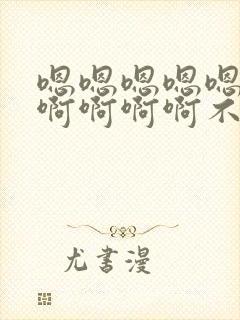 嗯嗯嗯嗯嗯
啊啊啊啊不
尤书漫